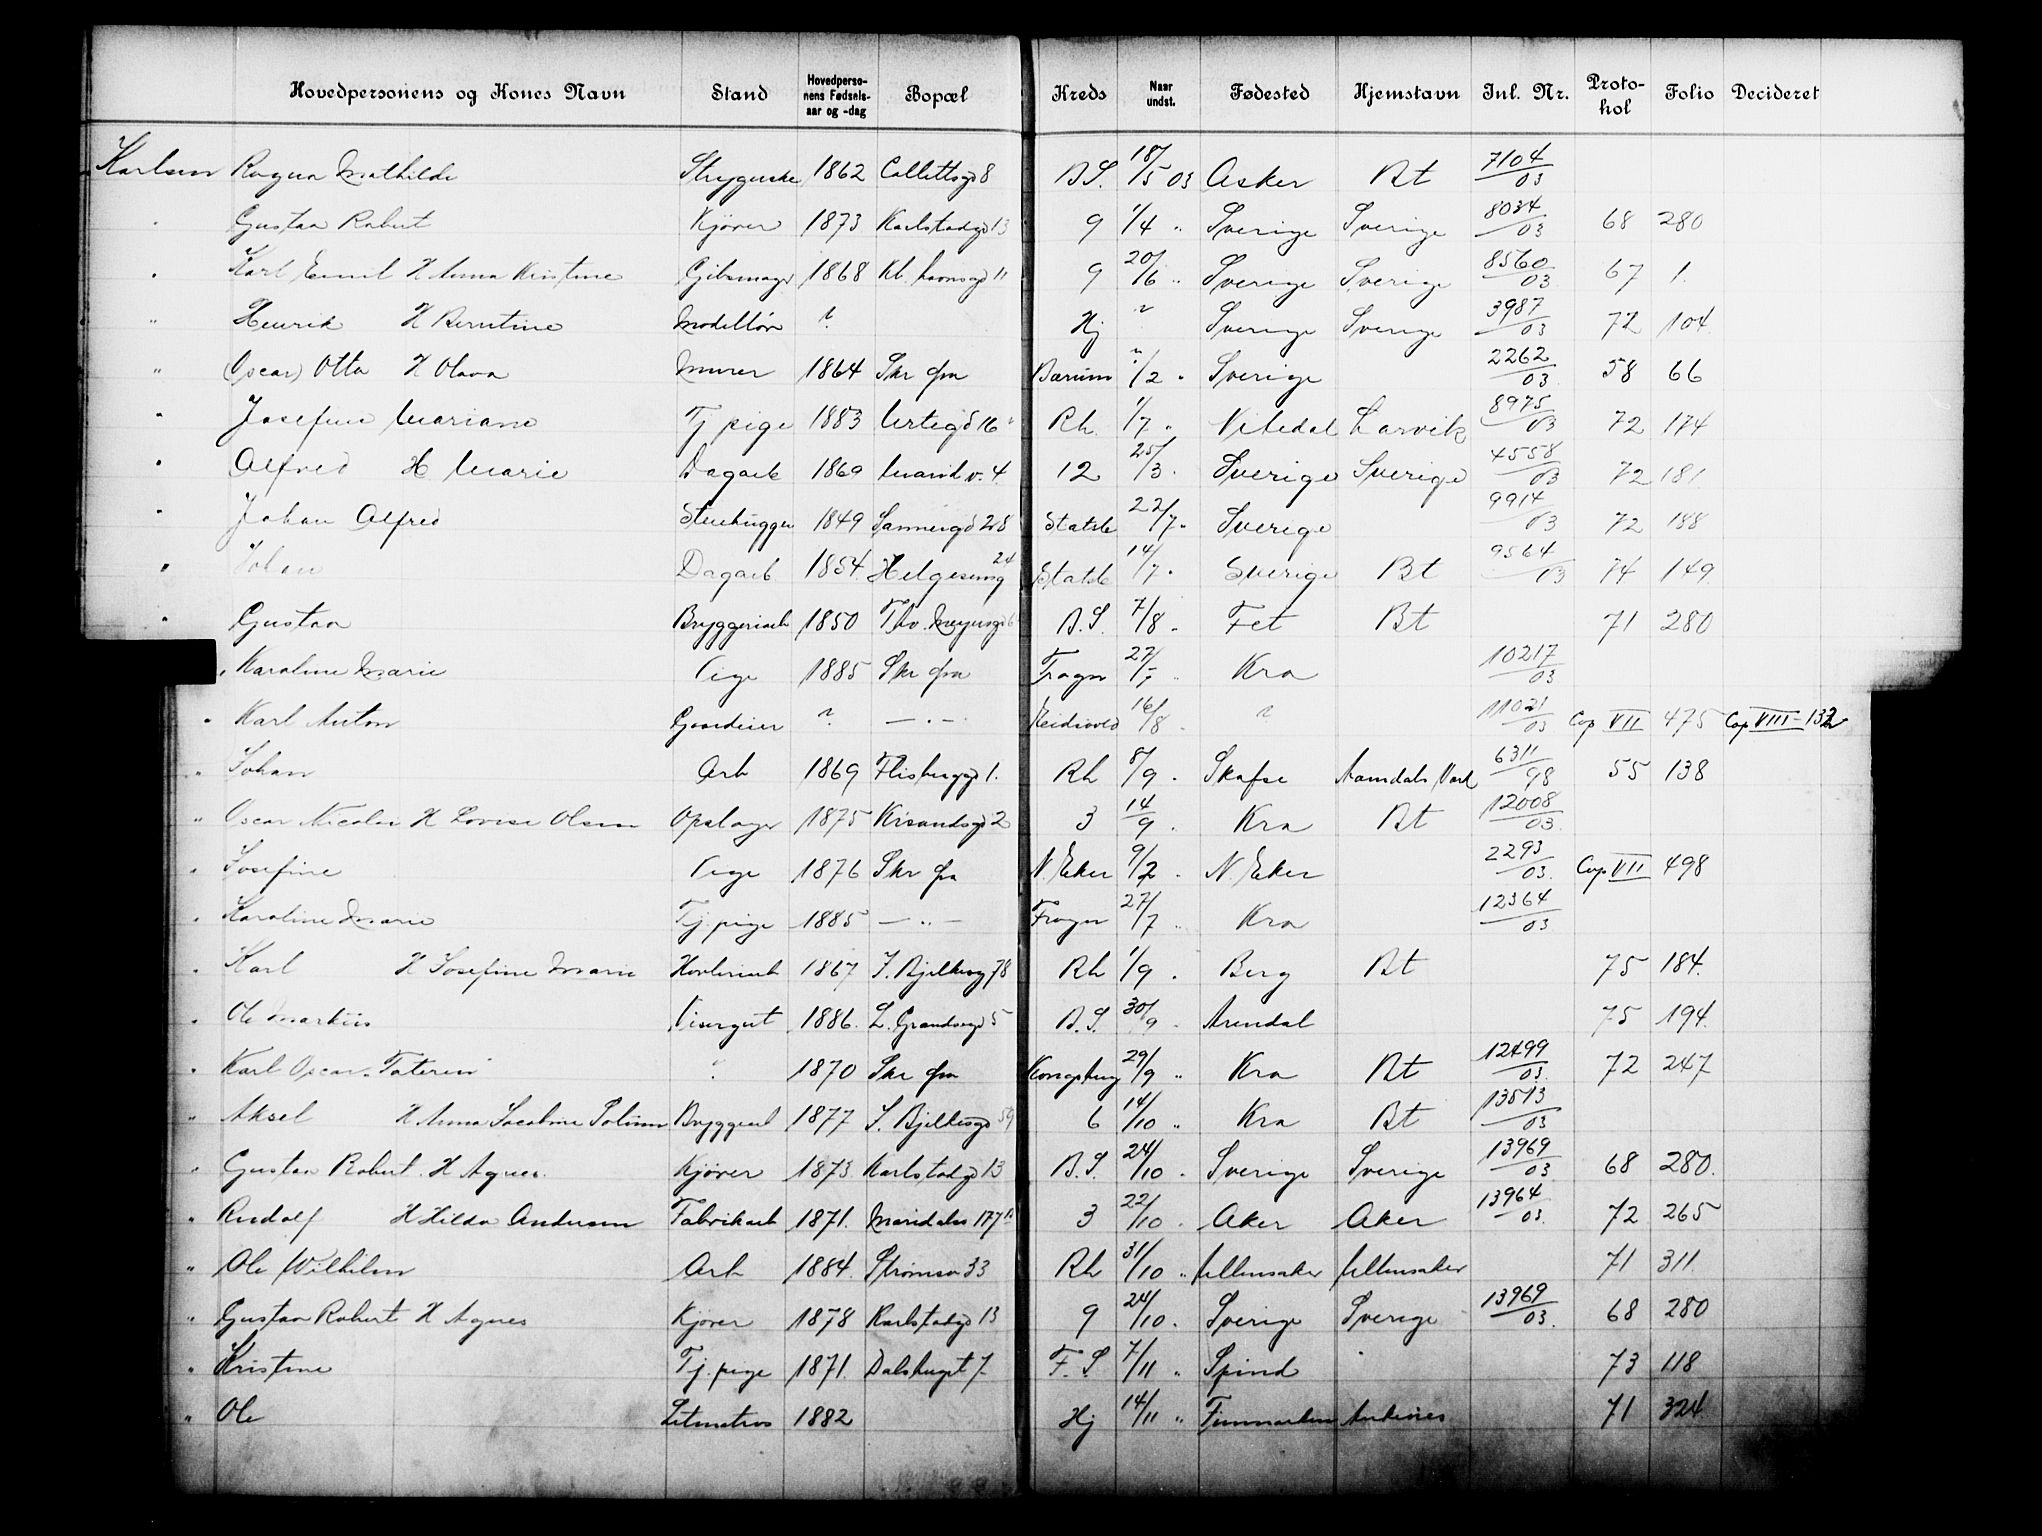 Hovedpersonens og Kones Navn Stand Hovedpersonens Fødselsaar og -dag Bopæl Kreds Naar undst. Fødested Hjemstavn Inl. Nr. Protokol Folio Decideret
Karlsen Ragna Mathilde Strygerske 1862 Collettsgd 8 B.S. 18/5 03 Asker Bt 7104/03
" Gustav Robert Kjører 1873 Karlstadgd 13 9 1/4 " Sverige Sverige 8034/03 68 280
" Karl Emil H Anna Kristine Gibsmager 1868 Kb.havnsgd 11 9 20/6 " Sverige Sverige 8560/03 67 1.
" Henrik H Berntine Modellør ? Hj ? Sverige Sverige 3987/03 72 104
" (Oscar) Otto H Olava Murer 1864 Skr fra Bærum ?/2 " Sverige 2262/03 58 66
" Josefine Mariane Tj pige 1883 Urtegd 16 Rh. 1/7 " Larvik 8975/03 72 174
" Alfred H Marie Dagarb 1869 Marid v. 4. 12 25/3 " Sverige Sverige 4558/03 72 181
" Johan Alfred Stenhugger 1849 Sannergd 28 Statsb 22/7 " Sverige 9914/03 72 188
" Johan Dagarb 1854. Helgesensg 24 Statsb 14/7 " Sverige Bt 9564/03 74 149
" Gustav Bryggeriarb 1850 Thv. Meyersgd 6 B.S. 7/8 " Fet Bt 71 280
" Karoline Marie Pige 1885 Skr fra Frogn 27/7 " Kra 10217/03
" Karl Anton Gaardeier ? — " — Eidsvold 16/8 " ? 11021/03 Cop VII 475 Cop VIII-132
" Johan Arb 1869 Flisberggd 1. Rh 8/9 " Skafse 6311/98 55 138
" Oscar Nicolai H Lovise Olsen Opslager 1875 Krsandsgd 2 3 14/9 " Kra Bt 12008/03
" Josefine Pige 1876 Skr fra N. Eker 9/2 " N. Eker 2293/03. Cop VII 498
" Karoline Marie Tj. pige 1885 — " — Frogn 27/7 " Kra 12364/03
" Karl H Josefine Marie Høvleriarb 1867 J. Bjelkesg 78 Rh 1/9 " Berg Bt 75 184.
" Ole Markus Visergut 1886. L. Grændsegd 5 B.S. 30/9 " Arendal 75 194.
" Karl Oscar. Tateren ? 1870 Skr fra Kongsberg 29/9 " Kra Bt 12499/03. 72 247
" Aksel H Anna Jacobine Bryggearb 1877 J. Bjelkesgd 59 6 14/10 " Kra Bt 13513/03
" Gustav Robert. H Agnes. Kjører 1873 Karlstadgd 13 B.S. 24/10 " Sverige Sverige 13969/03 68 280.
" Rudolf H Hilda Andersen Fabrikarb 1871. Maridalsv 177 3 22/10 " Aker Aker 13964/03. 72 265
" Ole Wilhelm Arb 1884. Strømsv 33 Rh 31/10 " Ullensaker Ullensaker 71 311
" Gustav Robert H Agnes Kjører 1878 Karlstadgd 13 9 24/10 " Sverige Sverige 13969/03. 68 280
" Kristine Tj. pige 1871. 7 F.S. 7/11 " Spind 73 118
" Ole Letmatros 1882 Hj 14/11 " Finmarken Andenes 71 324